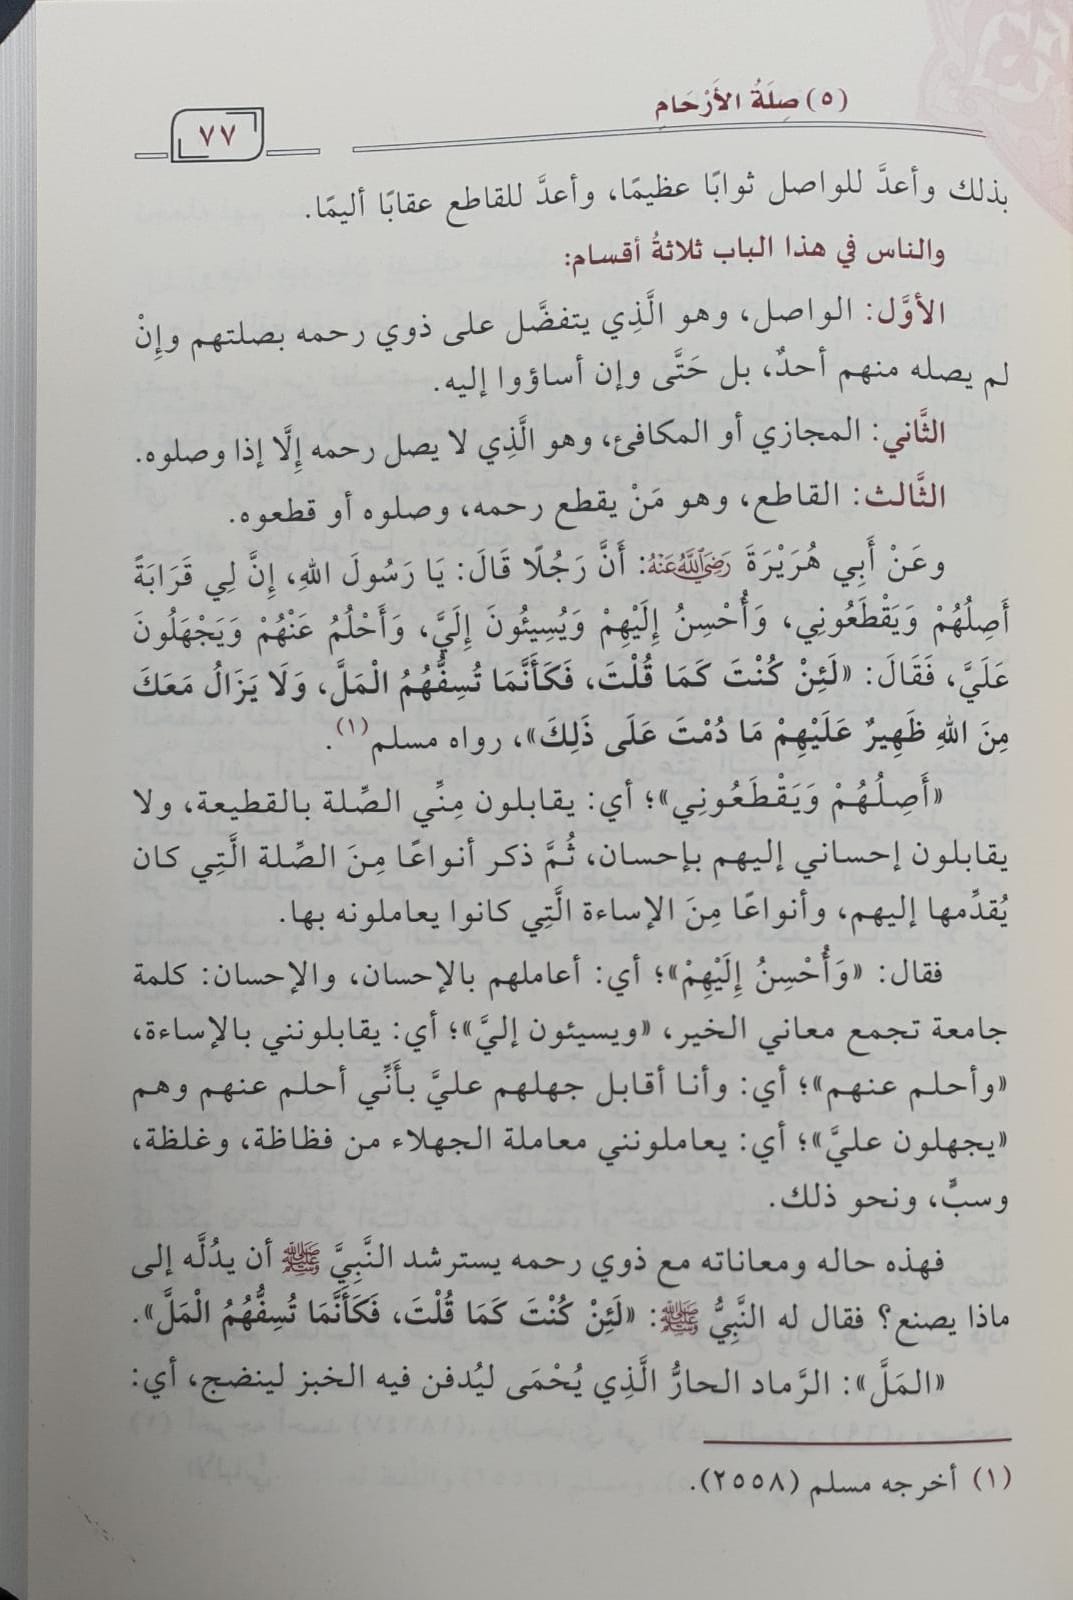 (٥) صِلَةُ الأَرْحَامِ
٧٧
بذلك وأعدَّ للواصل ثوابًا عظيمًا، وأعدَّ للقاطع عقابًا أليمًا.
والناس في هذا الباب ثلاثةُ أقسام:
الأوَّل: الواصل، وهو الَّذِي يتفضَّل على ذوي رحمه بصلتهم وإِنْ
لم يصله منهم أحدٌ، بل حَتَّى وإن أساؤوا إليه.
الثَّاني: المجازي أو المكافئ، وهو الَّذِي لا يصل رحمه إِلَّا إذا وصلوه.
الثَّالث: القاطع، وهو مَنْ يقطع رحمه، وصلوه أو قطعوه.
وعَنْ أَبِي هُرَيْرَةَ رَضِيَ اللَّهُ عَنْهُ: أَنَّ رَجُلًا قَالَ: يَا رَسُولَ اللهِ، إِنَّ لِي قَرَابَةً
أَصِلُهُمْ وَيَقْطَعُونِي، وَأُحْسِنُ إِلَيْهِمْ وَيُسِيئُونَ إِلَيَّ، وَأَحْلُمُ عَنْهُمْ وَيَجْهَلُونَ
عَلَيَّ، فَقَالَ: «لَئِنْ كُنْتَ كَمَا قُلْتَ، فَكَأَنَّمَا تُسِفُّهُمُ الْمَلَّ، وَلَا يَزَالُ مَعَكَ
مِنَ اللهِ ظَهِيرٌ عَلَيْهِمْ مَا دُمْتَ عَلَى ذَلِكَ»، رواه مسلم(١).
«أَصِلُهُمْ وَيَقْطَعُونِي»؛ أي: يقابلون مِنِّي الصِّلة بالقطيعة، ولا
يقابلون إحساني إليهم بإحسان، ثُمَّ ذكر أنواعًا مِنَ الصِّلة الَّتِي كان
يُقدِّمها إليهم، وأنواعًا مِنَ الإساءة الَّتِي كانوا يعاملونه بها.
فقال: «وَأُحْسِنُ إِلَيْهِمْ»؛ أي: أعاملهم بالإحسان، والإحسان: كلمة
جامعة تجمع معاني الخير، «ويسيئون إليَّ»؛ أي: يقابلونني بالإساءة،
«وأحلم عنهم»؛ أي: وأنا أقابل جهلهم عليَّ بأَنِّي أحلم عنهم وهم
«يجهلون عليَّ»؛ أي: يعاملونني معاملة الجهلاء من فظاظة، وغلظة،
وسبٍّ، ونحو ذلك.
فهذه حاله ومعاناته مع ذوي رحمه يسترشد النَّبِيَّ ﷺ أن يدُلَّه إلى
ماذا يصنع؟ فقال له النَّبِيُّ ﷺ: «لَئِنْ كُنْتَ كَمَا قُلْتَ، فَكَأَنَّمَا تُسِفُّهُمُ الْمَلَّ».
«المَلَّ»: الرَّماد الحارُّ الَّذِي يُحْمَى ليُدفن فيه الخبز لينضج، أي:
(١) أخرجه مسلم (٢٥٥٨).